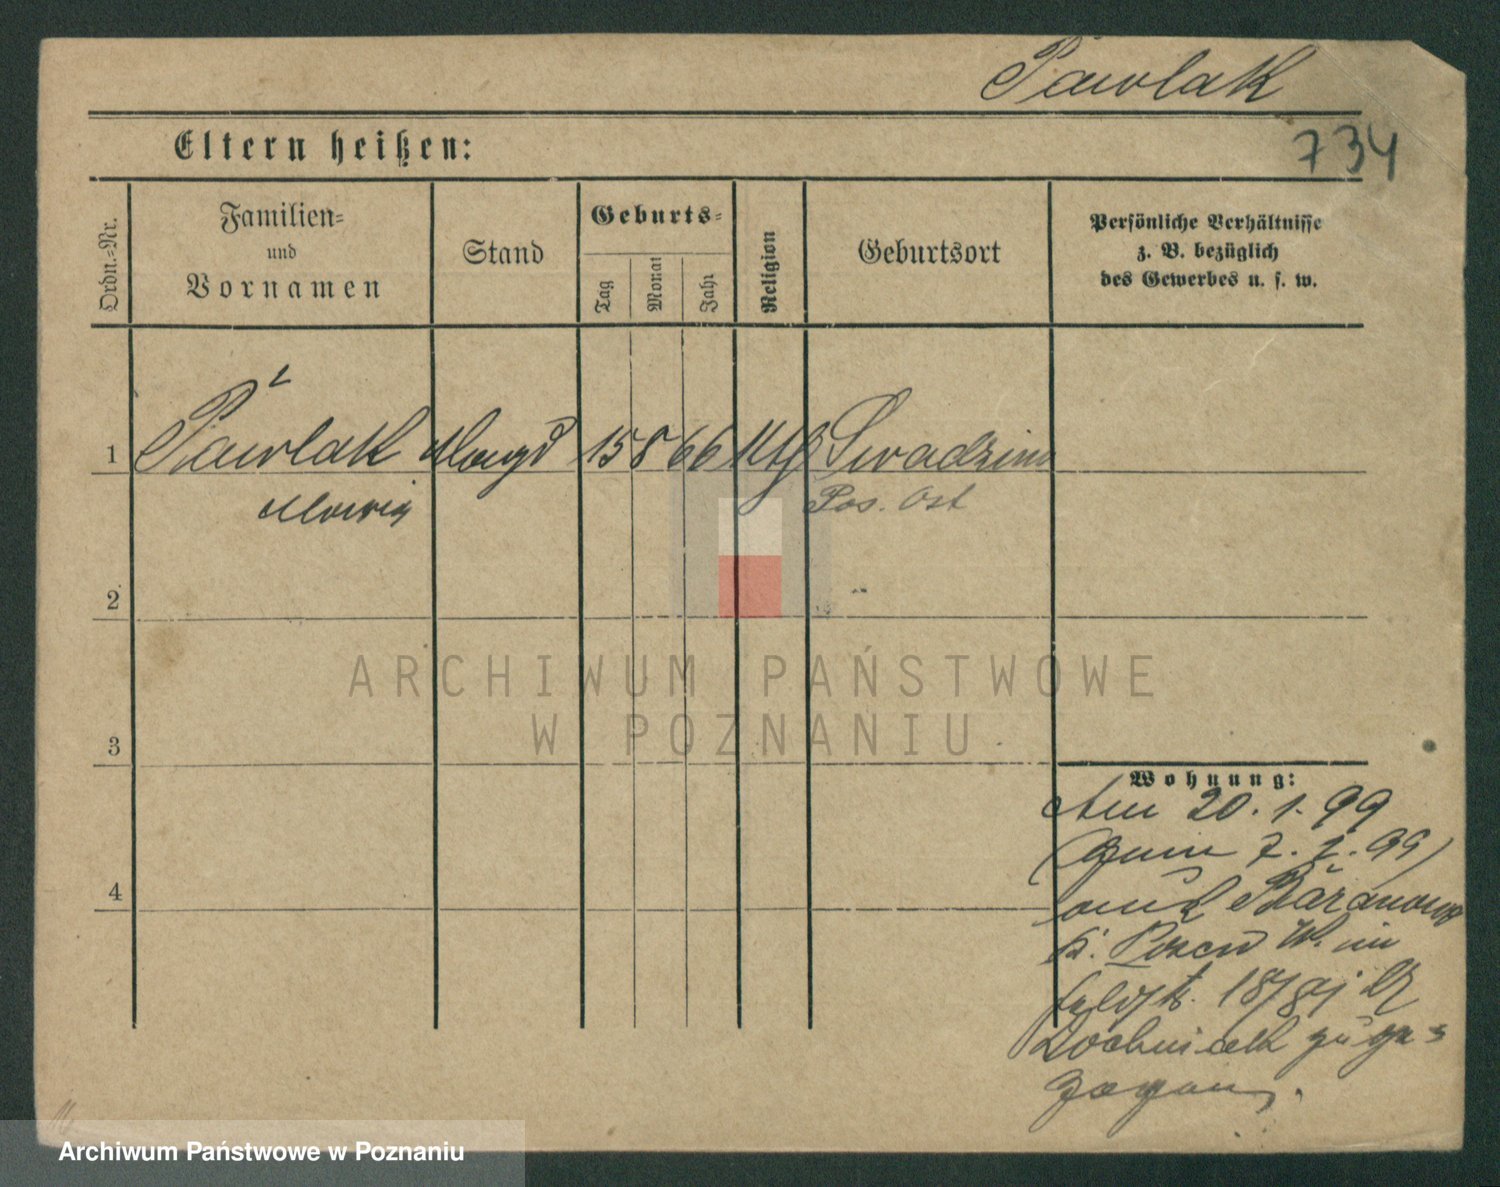 Pawlak
734
Eltern heißen:
Ordn.-Nr.
Familien-
und
Vornamen
Stand
Geburts-
Tag
Monat
Jahr
Religion
Geburtsort
Persönliche Verhältnisse
z. B. bezüglich
des Gewerbes u. s. w.
1 Pawlak Magd 15 8 66 Kth Swadzim
Maria Pos. Ost
2
3
4
Wohnung:
Am 20. 1. 99
7. 1. 99)
W. im
18/
zuge=
zogen.
ARCHIWUM PAŃSTWOWE
W POZNANIU
Archiwum Państwowe w Poznaniu